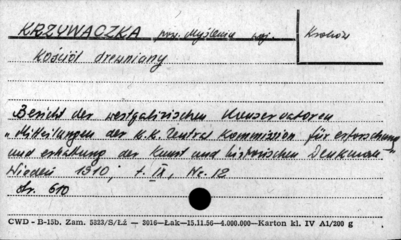 KRZYWACZKA pow. Myślenice woj. Kraków
Kościół drewniany
Bericht der westgalizischen Konservatoren
"Mitteilungen der K.K. Zentral Kommission für erforschung
und erhaltung der Kunst und historischen Denkmale"
Wiedeń 1910, t. IX, Nr. 12
str. 610
CWD - B-15b. Zam. 5323/S/Łż — 2016—Łak—15.11.56—4.000.000—Karton kl. IV A1/200 g